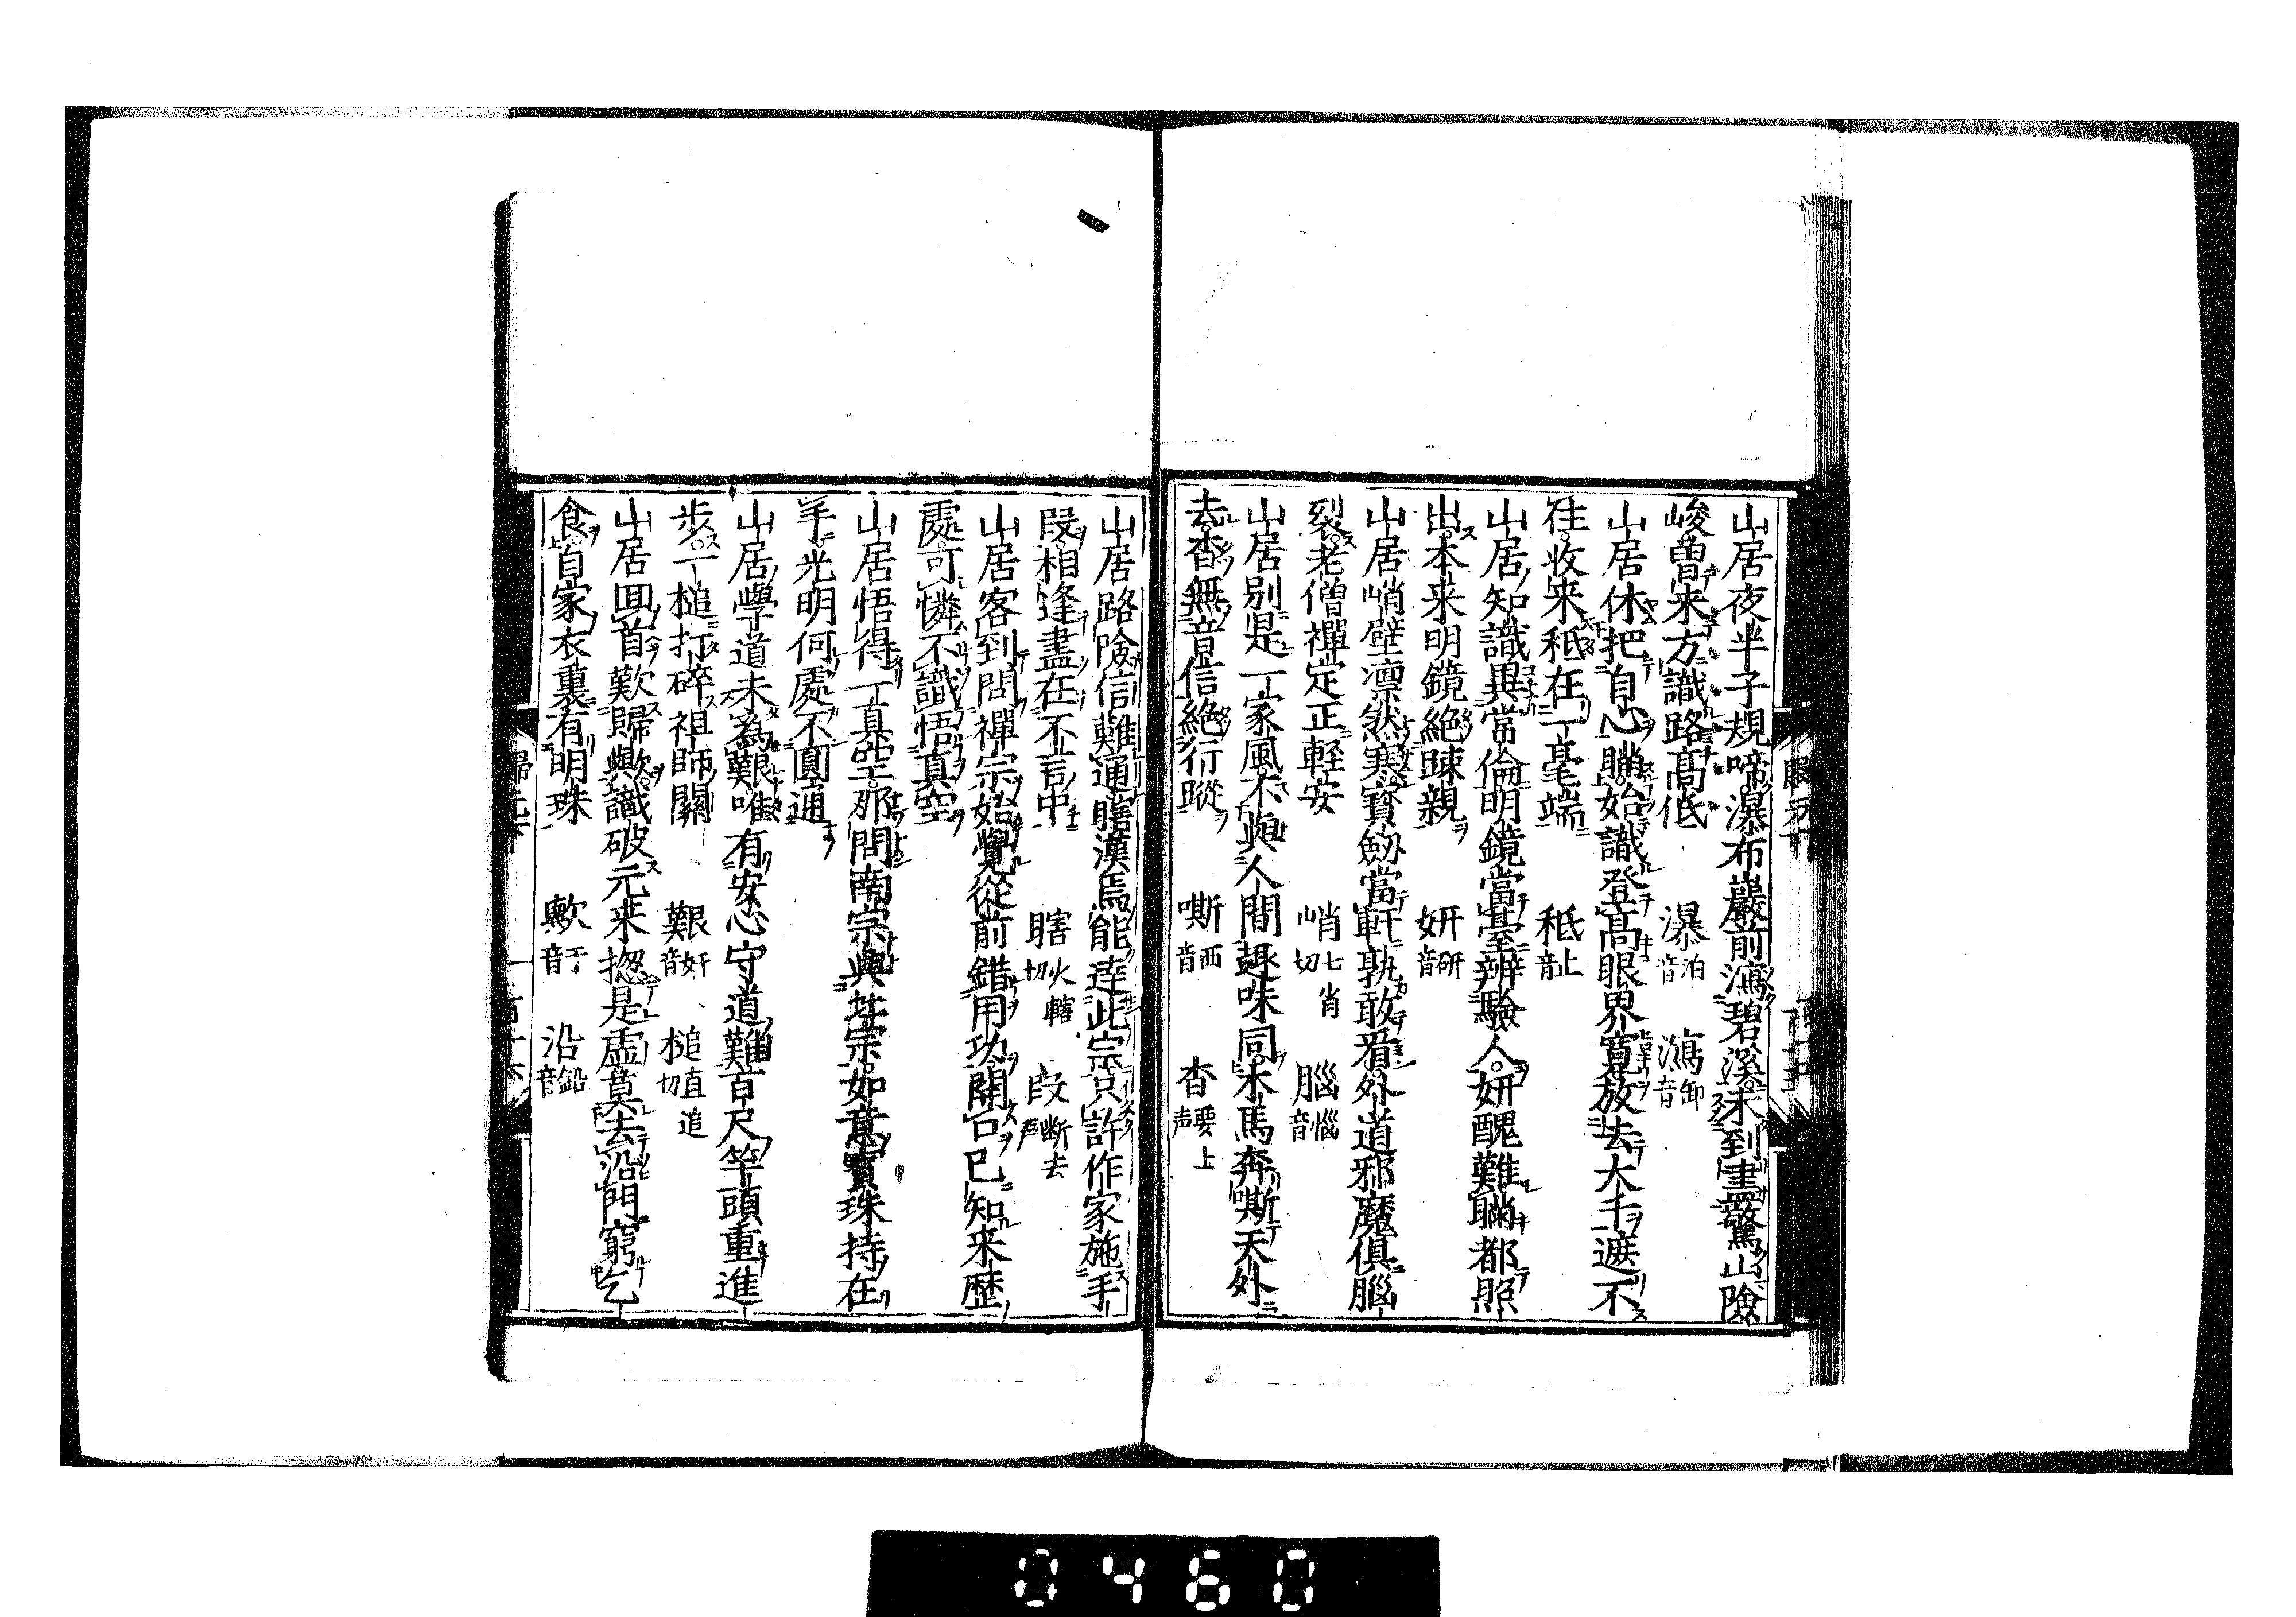 山居夜半子規啼瀑布巖前瀉碧溪未到盡驚山險
峻曾来方識路髙低　瀑音泊　瀉音卸
山居休把自心瞞始識登髙眼界寬放去大千遮不
住收来秪在一毫端　秪音止
山居知識異常倫明鏡當臺辨驗人妍醜難瞞都照
出本来明鏡絶踈親　妍音研
山居峭壁凛然寒寳劔當軒孰敢㸔外道邪魔俱腦
裂老僧禪定正軽安　峭七肖切　腦音惱
山居别是一家風不與人間趣味同木馬奔嘶天外
去杳無音信絶行蹤　嘶音西　杳要上声
山居路險信難通瞎漢焉能逹此宗只許作家施手
段相逢盡在不言中　瞎火轄切　段断去声
山居客到問禪宗始覺從前錯用功開口已知来歴
處可憐不識悟真空
山居悟得一真空那問南宗與北宗如意寳珠持在
手光明何處不圓通
山居學道未為艱唯有安心守道難百尺竿頭重進
步一槌打碎祖師關　艱音奸　槌直追切
山居囬首歎歸歟識破元来揔是虚莫去沿門窮乞
食自家衣裏有明珠　歟音于　沿音鉛
0460